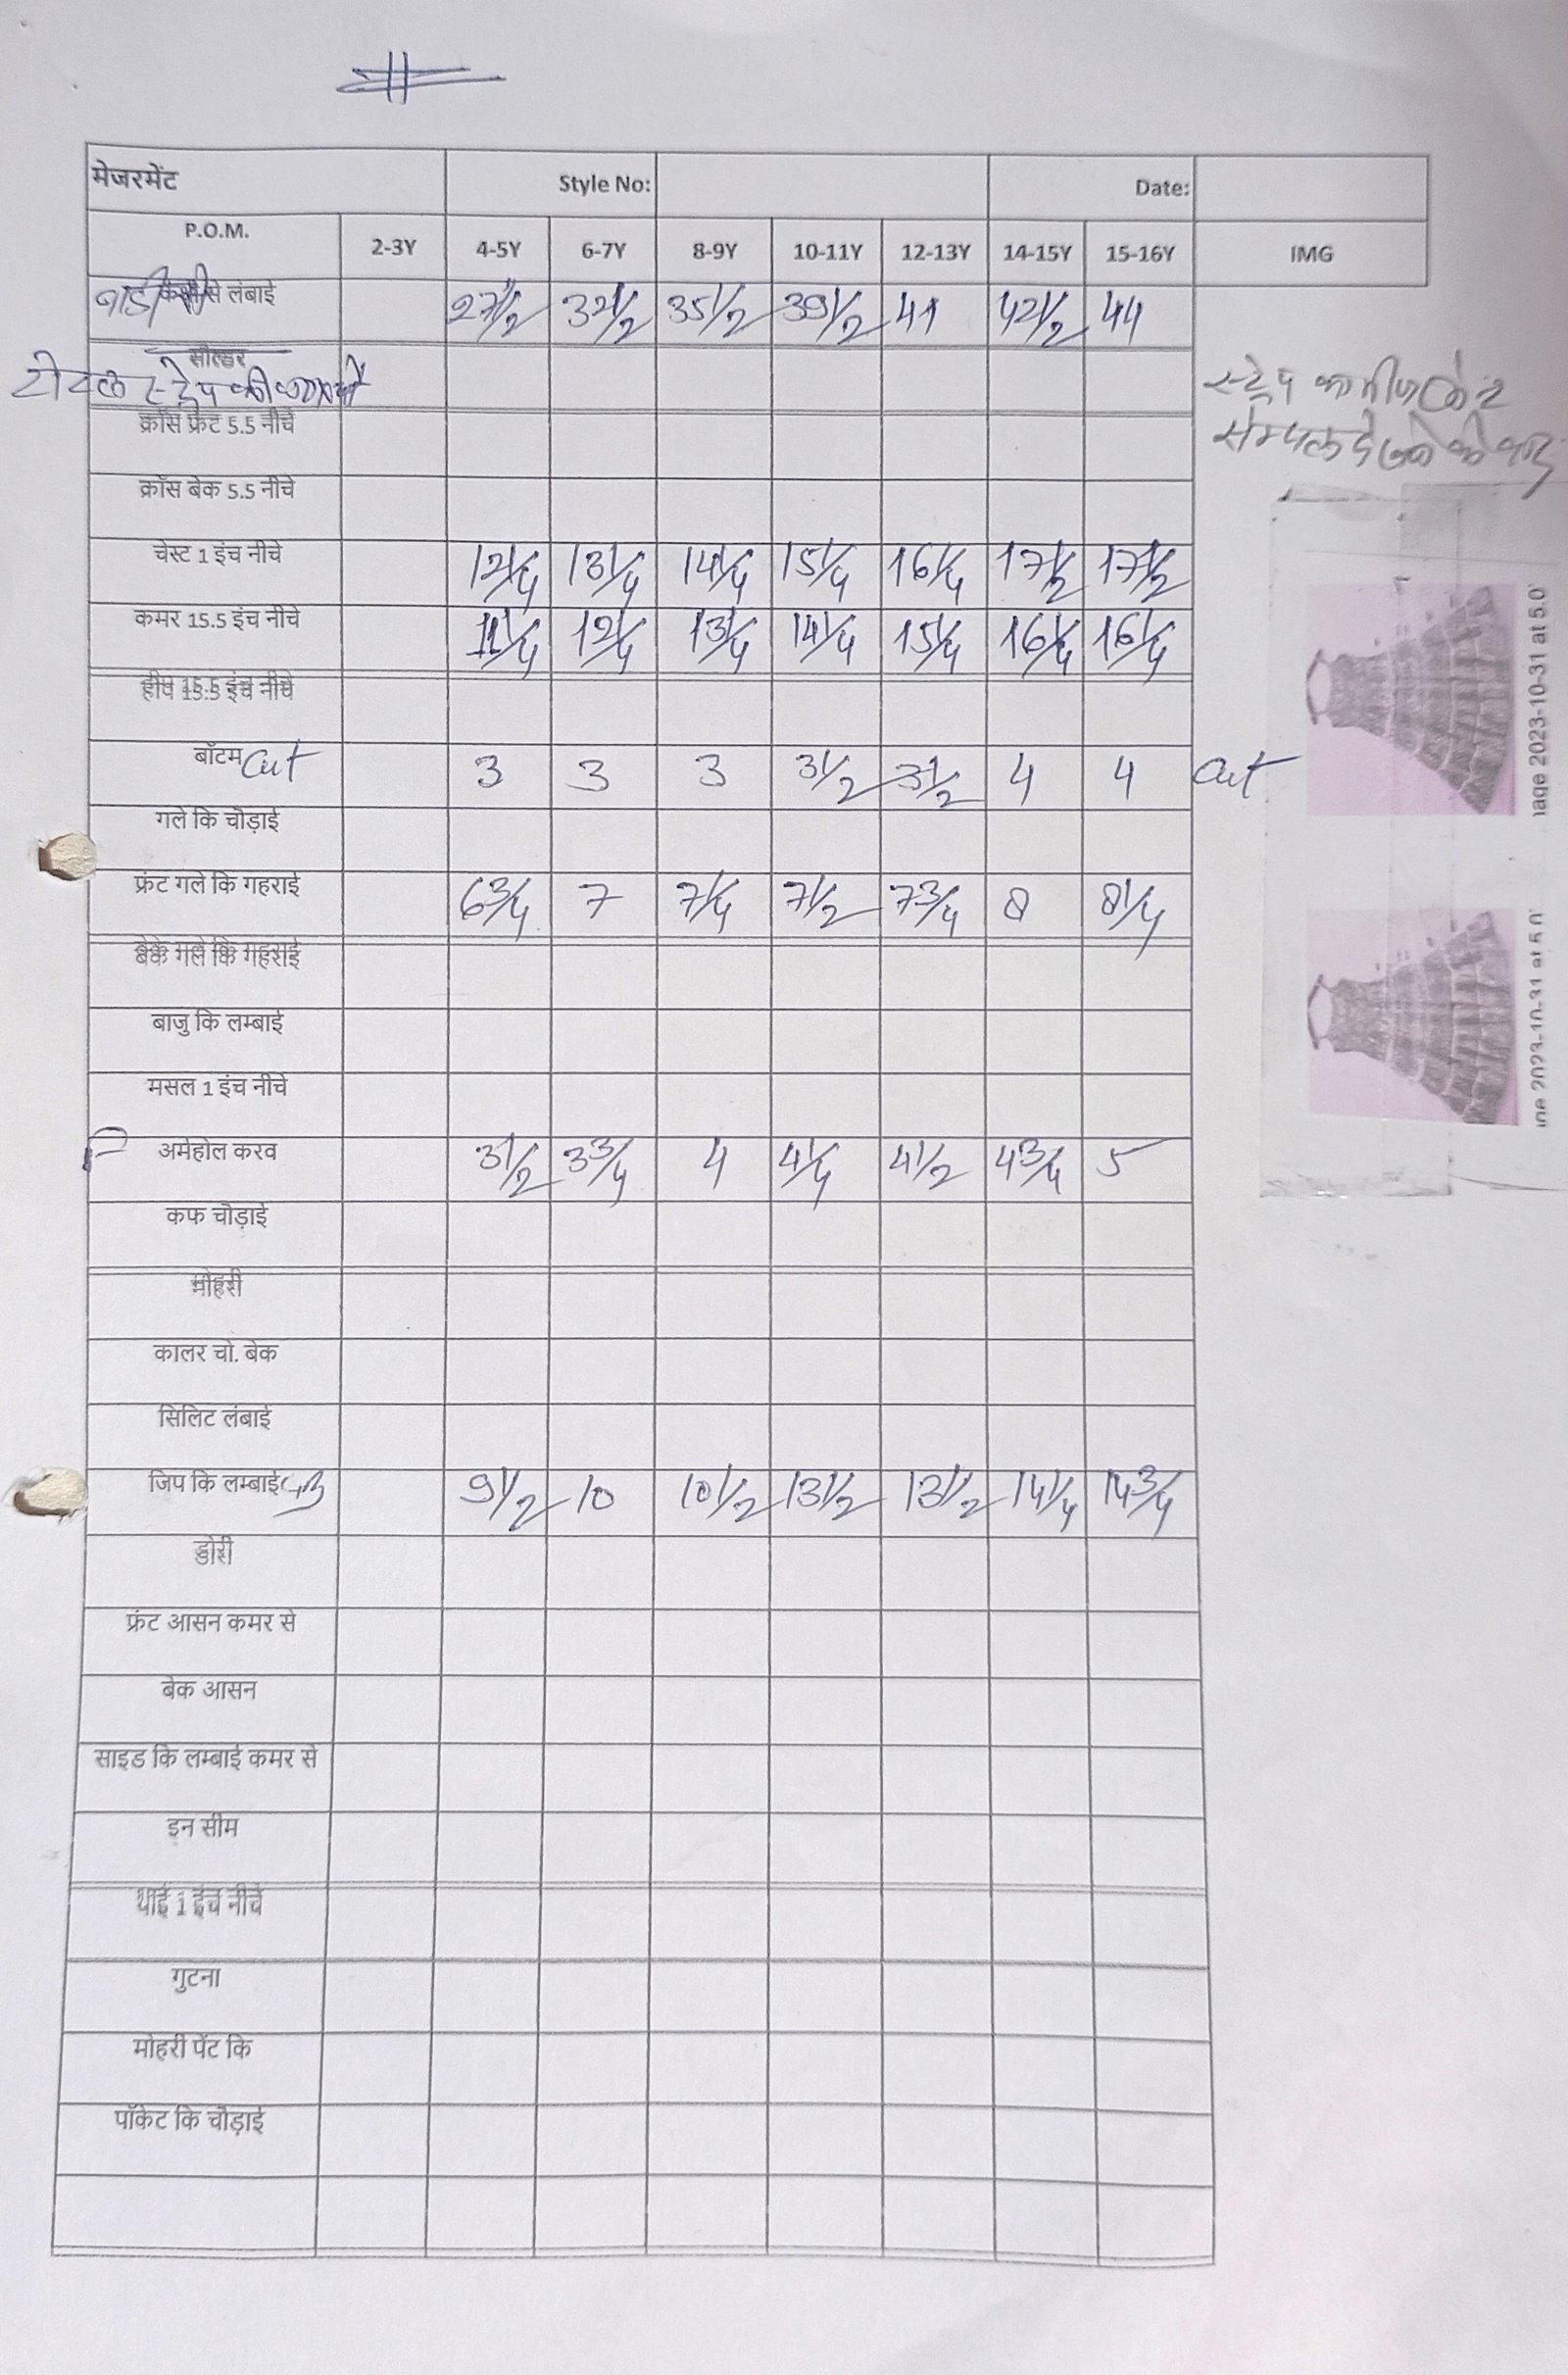 मेजरमेंट Style No: Date:
P.O.M. 2-3Y 4-5Y 6-7Y 8-9Y 10-11Y 12-13Y 14-15Y 15-16Y IMG
बाडी से लंबाई 27 1/2 32 1/2 35 1/2 39 1/2 41 42 1/2 44
सोल्डर
टोटल स्ट्रेप की
स्ट्रेप का
सेम्पल
क्रॉस फ्रंट 5.5 नीचे
क्रॉस बेक 5.5 नीचे
चेस्ट 1 इंच नीचे 12 1/4 13 1/4 14 1/4 15 1/4 16 1/4 17 1/2 17 1/2
कमर 15.5 इंच नीचे 11 1/4 12 1/4 13 1/4 14 1/4 15 1/4 16 1/4 16 1/4
हीप 15.5 इंच नीचे
बॉटम Cut 3 3 3 3 1/2 3 1/2 4 4 Cut
गले कि चौड़ाई
फ्रंट गले कि गहराई 6 3/4 7 7 1/4 7 1/2 7 3/4 8 8 1/4
बेक गले कि गहराई
बाजु कि लम्बाई
मसल 1 इंच नीचे
अर्महोल करव 3 1/2 3 3/4 4 4 1/4 4 1/2 4 3/4 5
कफ चौड़ाई
मोहरी
कालर चो. बेक
सिलिट लंबाई
जिप कि लम्बाई 9 1/2 10 10 1/2 13 1/2 13 1/2 14 1/4 14 3/4
डोरी
फ्रंट आसन कमर से
बेक आसन
साइड कि लम्बाई कमर से
इन सीम
थाई 1 इंच नीचे
गुटना
मोहरी पेंट कि
पॉकेट कि चौड़ाई
2023-10-31 at 5.0
2023-10-31 at 5.0